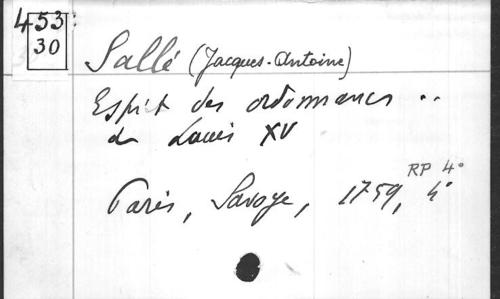 453:
30
Sallé (Jacques-Antoine)
Esprit des ordonnances ..
de Louis XV
RP 4°
Paris, Savoye, 1759, 4°